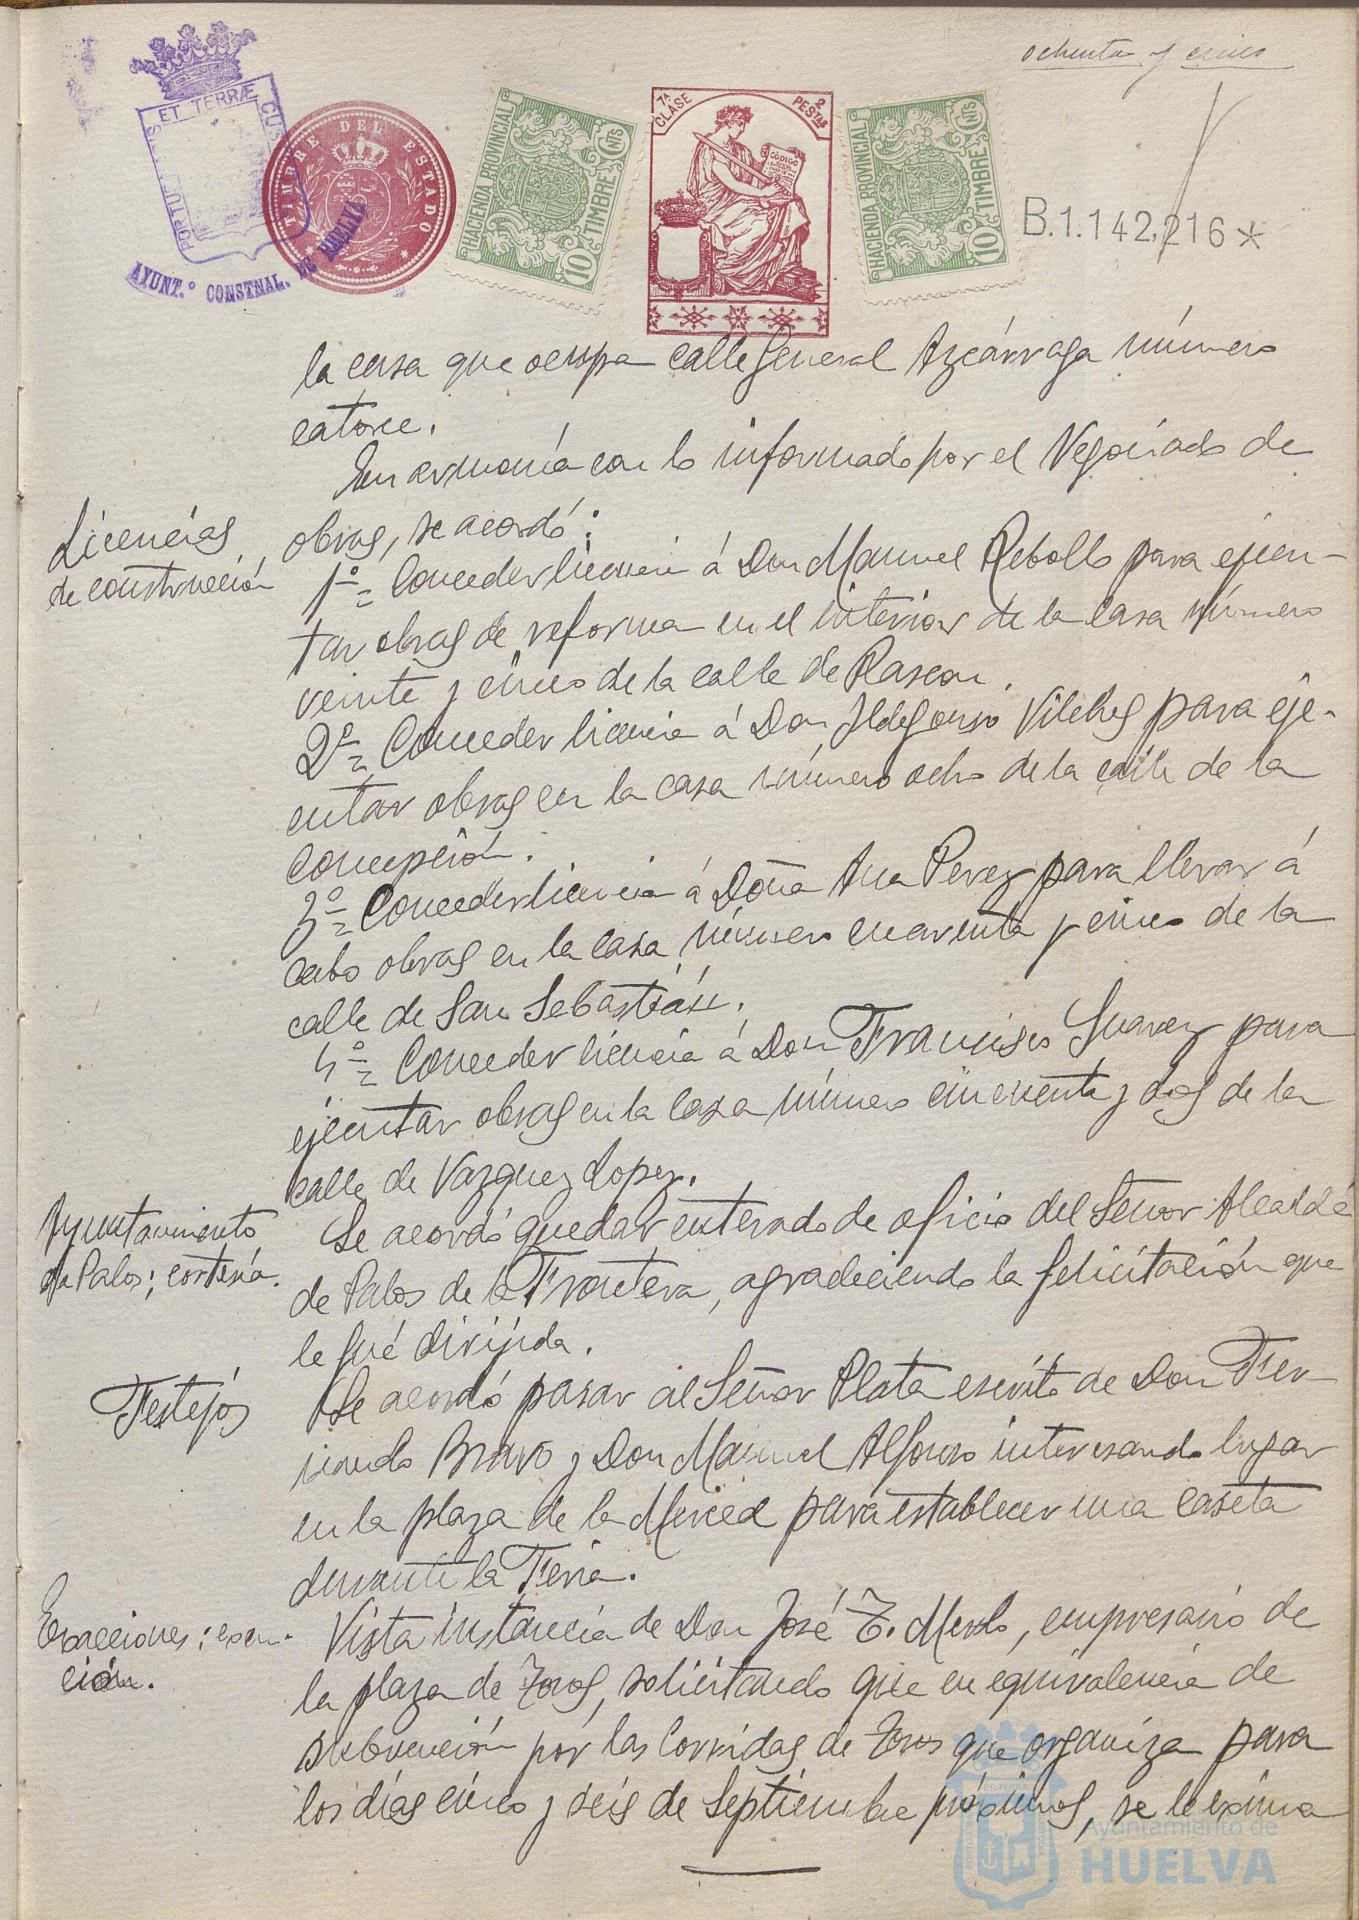 ochenta y cinco
ET TERRÆ CUS
PORTUS MARIS
AYUNT.º CONSTNAL. DE HUELVA
TIMBRE DEL ESTADO
HACIENDA PROVINCIAL
10 CNTS
TIMBRE
7ª CLASE
2 PESTAS
CODIGO
HACIENDA PROVINCIAL
10 CNTS
TIMBRE
B.1.142,216*
la casa que ocupa calle General Azcárraga número
catorce.
En armonía con lo informado por el Negociado de
Licencias
de construcción
obras, se acordó:
1º= Conceder licencia á Don Manuel Rebollo para ejecu-
tar obras de reforma en el interior de la casa número
veinte y cinco de la calle de Rascon.
2º= Conceder licencia á Don Ildefonso Vilches para eje-
cutar obras en la casa número ocho de la calle de la
Concepción.
3º= Conceder licencia á Doña Ana Perez para llevar á
cabo obras en la casa número cuarenta y cinco de la
calle de San Sebastián.
4º= Conceder licencia á Don Francisco Suarez para
ejecutar obras en la casa número cincuenta y dos de la
calle de Vazquez Lopez.
Ayuntamiento
de Palos; cortesía.
Se acordó quedar enterado de oficio del Señor Alcalde
de Palos de la Frontera, agradeciendo la felicitación que
le fué dirijida.
Festejos
Se acordó pasar al Señor Plata escrito de Don Fer-
nando Bravo y Don Manuel Alfonso interesando lugar
en la plaza de la Merced para establecer una caseta
durante la Feria.
Exacciones; exen-
ción.
Vista instancia de Don José T. Merlo, empresario de
la plaza de Toros, solicitando que en equivalencia de
subvención por las Corridas de Toros que organiza para
los días cinco y seis de Septiembre próximos, se le exima
Ayuntamiento de
HUELVA